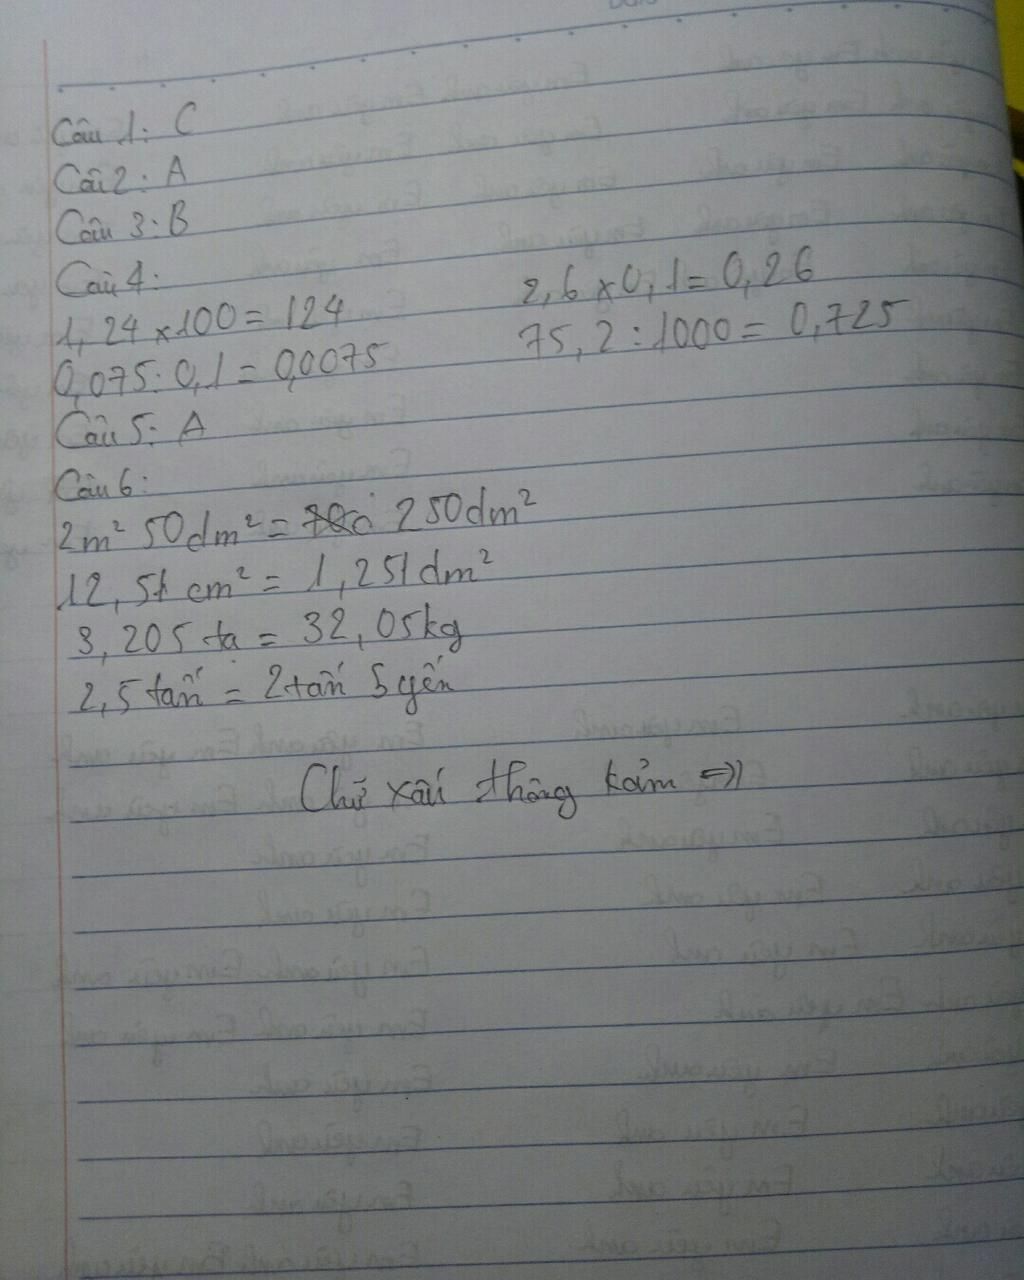 Câu 1: C
Câu 2: A
Câu 3: B
Câu 4:
1,24 x 100 = 124 2,6 x 0,1 = 0,26
0,075 : 0,1 = 0,0075 75,2 : 1000 = 0,725
Câu 5: A
Câu 6:
2m² 50dm² = 250dm²
12,51 cm² = 1,251dm²
3,205 tạ = 32,05kg
2,5 tấn = 2 tấn 5 yến
Chữ xấu thông kảm =))